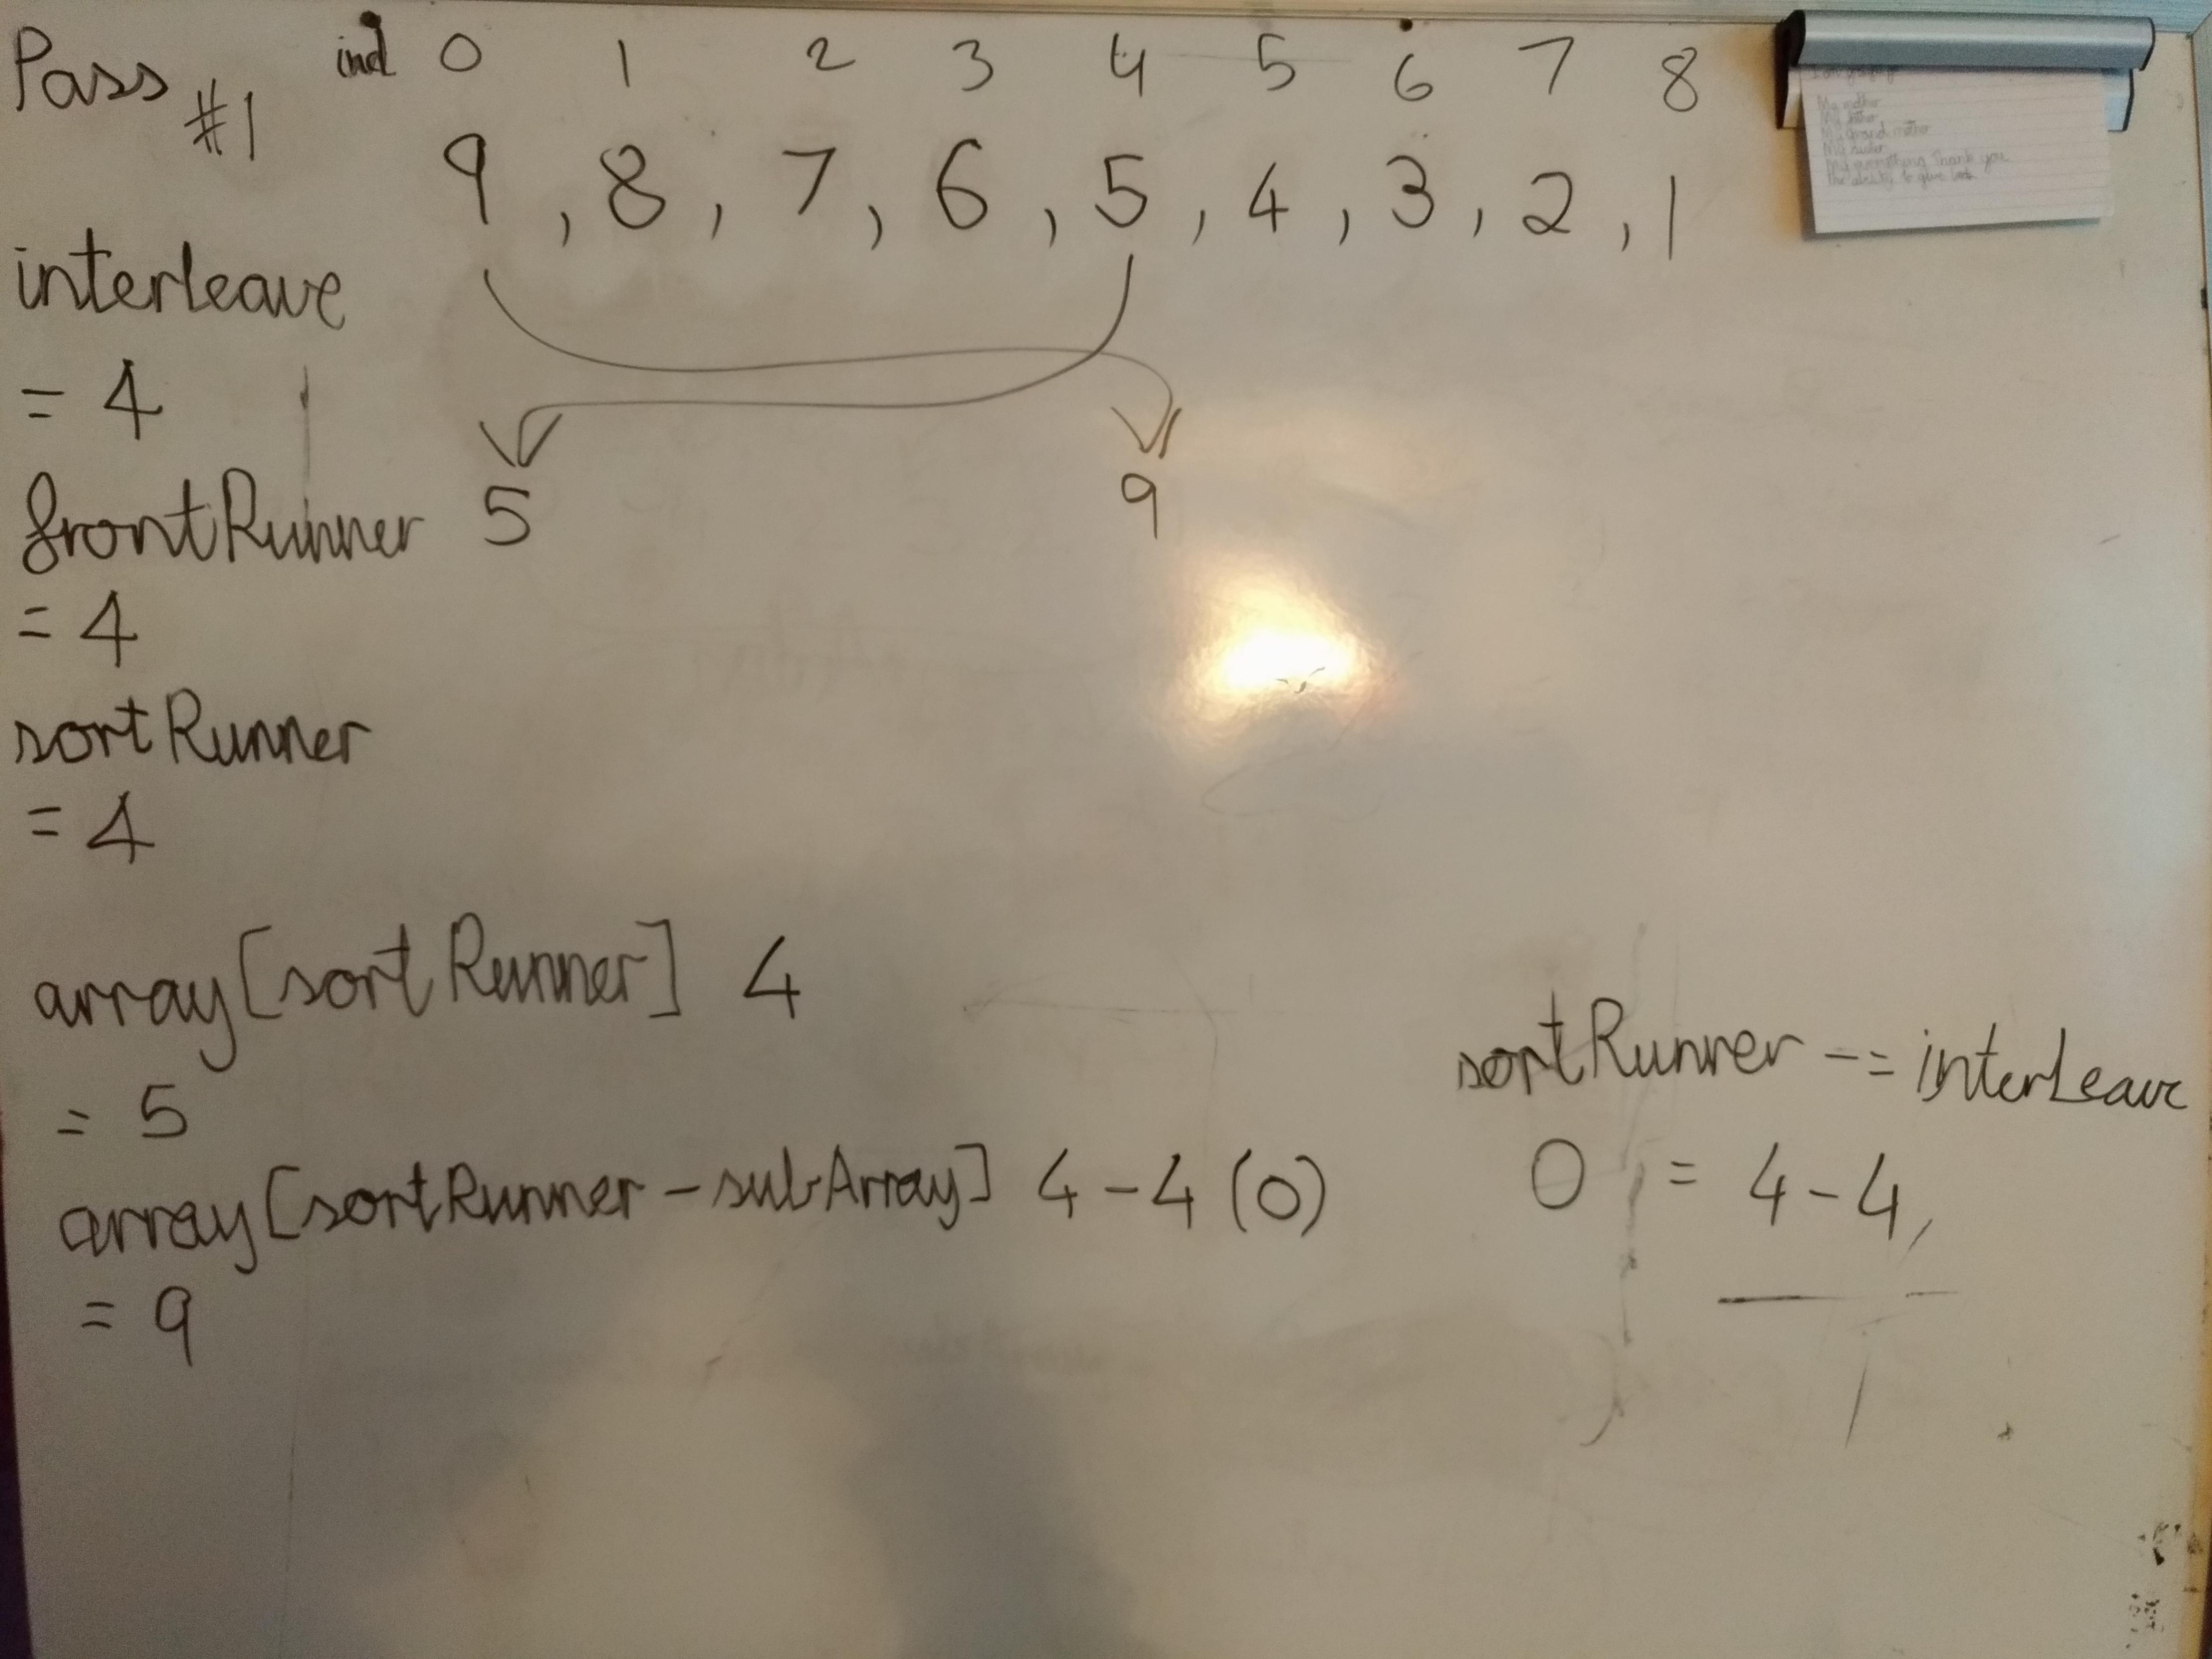 Pass #1 ind 0 1 2 3 4 5 6 7 8
9 , 8 , 7 , 6 , 5 , 4 , 3 , 2 , 1
interleave
= 4
frontRunner 5 9
= 4
sortRunner
= 4
array[sortRunner] 4
= 5
array[sortRunner - subArray] 4 - 4 (0)
= 9
sortRunner -= interLeave
0 = 4 - 4
My mother
My father
My Grand mother
My sister
My everything Thank you
the ability to give